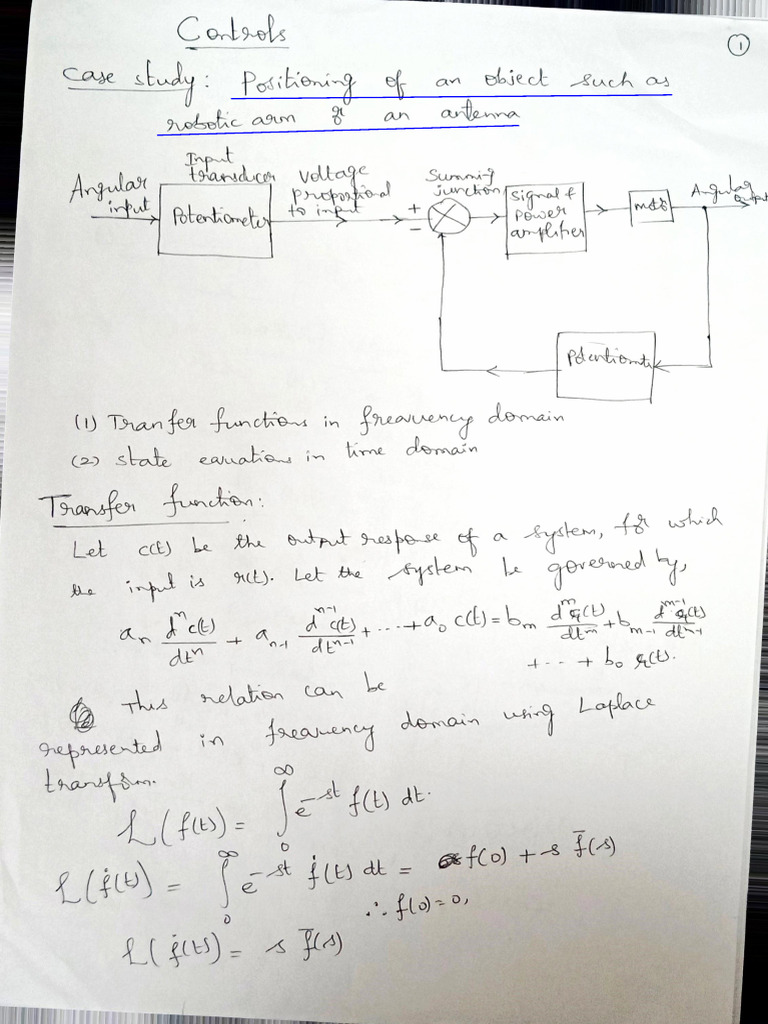 Controls
1
Case study: Positioning of an object such as
robotic arm or an antenna
Input
transducer
Angular
input
Potentiometer
Voltage
proportional
to input
Summing
junction
+
−
Signal &
power
amplifier
motor
Angular
output
Potentiomete
(1) Tranfer functions in frequency domain
(2) state equations in time domain
Transfer function:
Let c(t) be the output response of a system, for which
the input is r(t). Let the system be governed by,
aₙ dⁿc(t)/dtⁿ + aₙ₋₁ dⁿ⁻¹c(t)/dtⁿ⁻¹ + ... + a₀ c(t) = bₘ dᵐr(t)/dtᵐ + bₘ₋₁ dᵐ⁻¹r(t)/dtᵐ⁻¹
+ ... + b₀ r(t).
This relation can be
represented in frequency domain using Laplace
transform.
L(f(t)) = ∫₀^∞ e^-st f(t) dt.
L(ḟ(t)) = ∫₀^∞ e^-st ḟ(t) dt = f(0) + s f̄(s)
∴ f(0) = 0,
L(ḟ(t)) = s f̄(s)